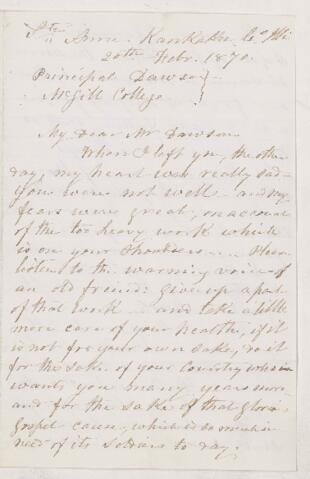 Ste Anne. Kankakee Co. Ills
20th Febr. 1870.
Principal Dawson
McGill College
My Dear Mr Dawson
When I left you, the other
day, my heart was really sad
you were not well - and my
fears were great, on account
of the too heavy work which
is on your shoulders. . . .
listen to the warning voice of
an old friend: give up a part
of that work - and take a little
more care of your health; if it
is not for your own sake, do it
for the sake of your country who
wants you many years more
and for the sake of that glorious
gospel cause, which is so much in
need of its soldiers to day.